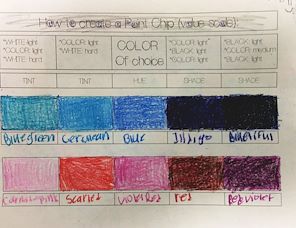 How to create a Paint Chip (value scale):
*WHITE: light *COLOR: light COLOR *COLOR: light *BLACK: light
*COLOR: light *WHITE: hard Of choice *BLACK: light *COLOR: medium
*WHITE: hard *COLOR: light *BLACK: light
TINT TINT HUE SHADE SHADE
Bluegreen Cerulean Blue Indigo
Carnationpink Scarlet violetRed red Redviolet